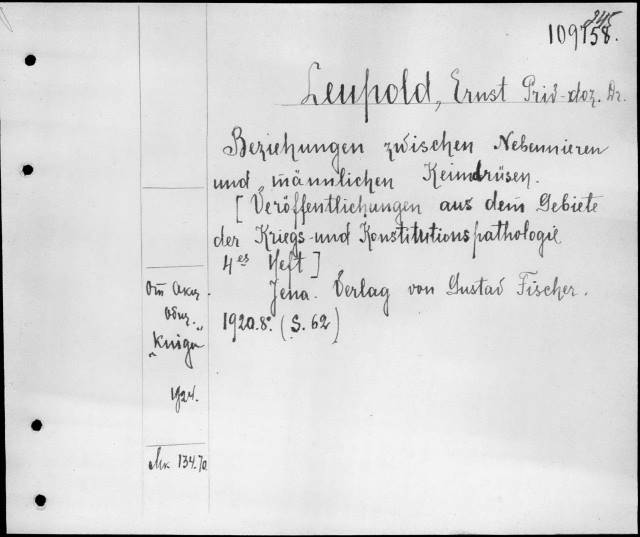 245
109758.
Leupold, Ernst Priv-doz. Dr.
Beziehungen zwischen Nebennieren
und männlichen Keimdrüsen.
[Veröffentlichungen aus dem Gebiete
der Kriegs-und Konstitutionspathologie
4es Heft]
Jena. Verlag von Gustav Fischer.
1920.8°. (S. 62)
От Акц.
Общ.
"Книга"
1924.
Мк 134.70